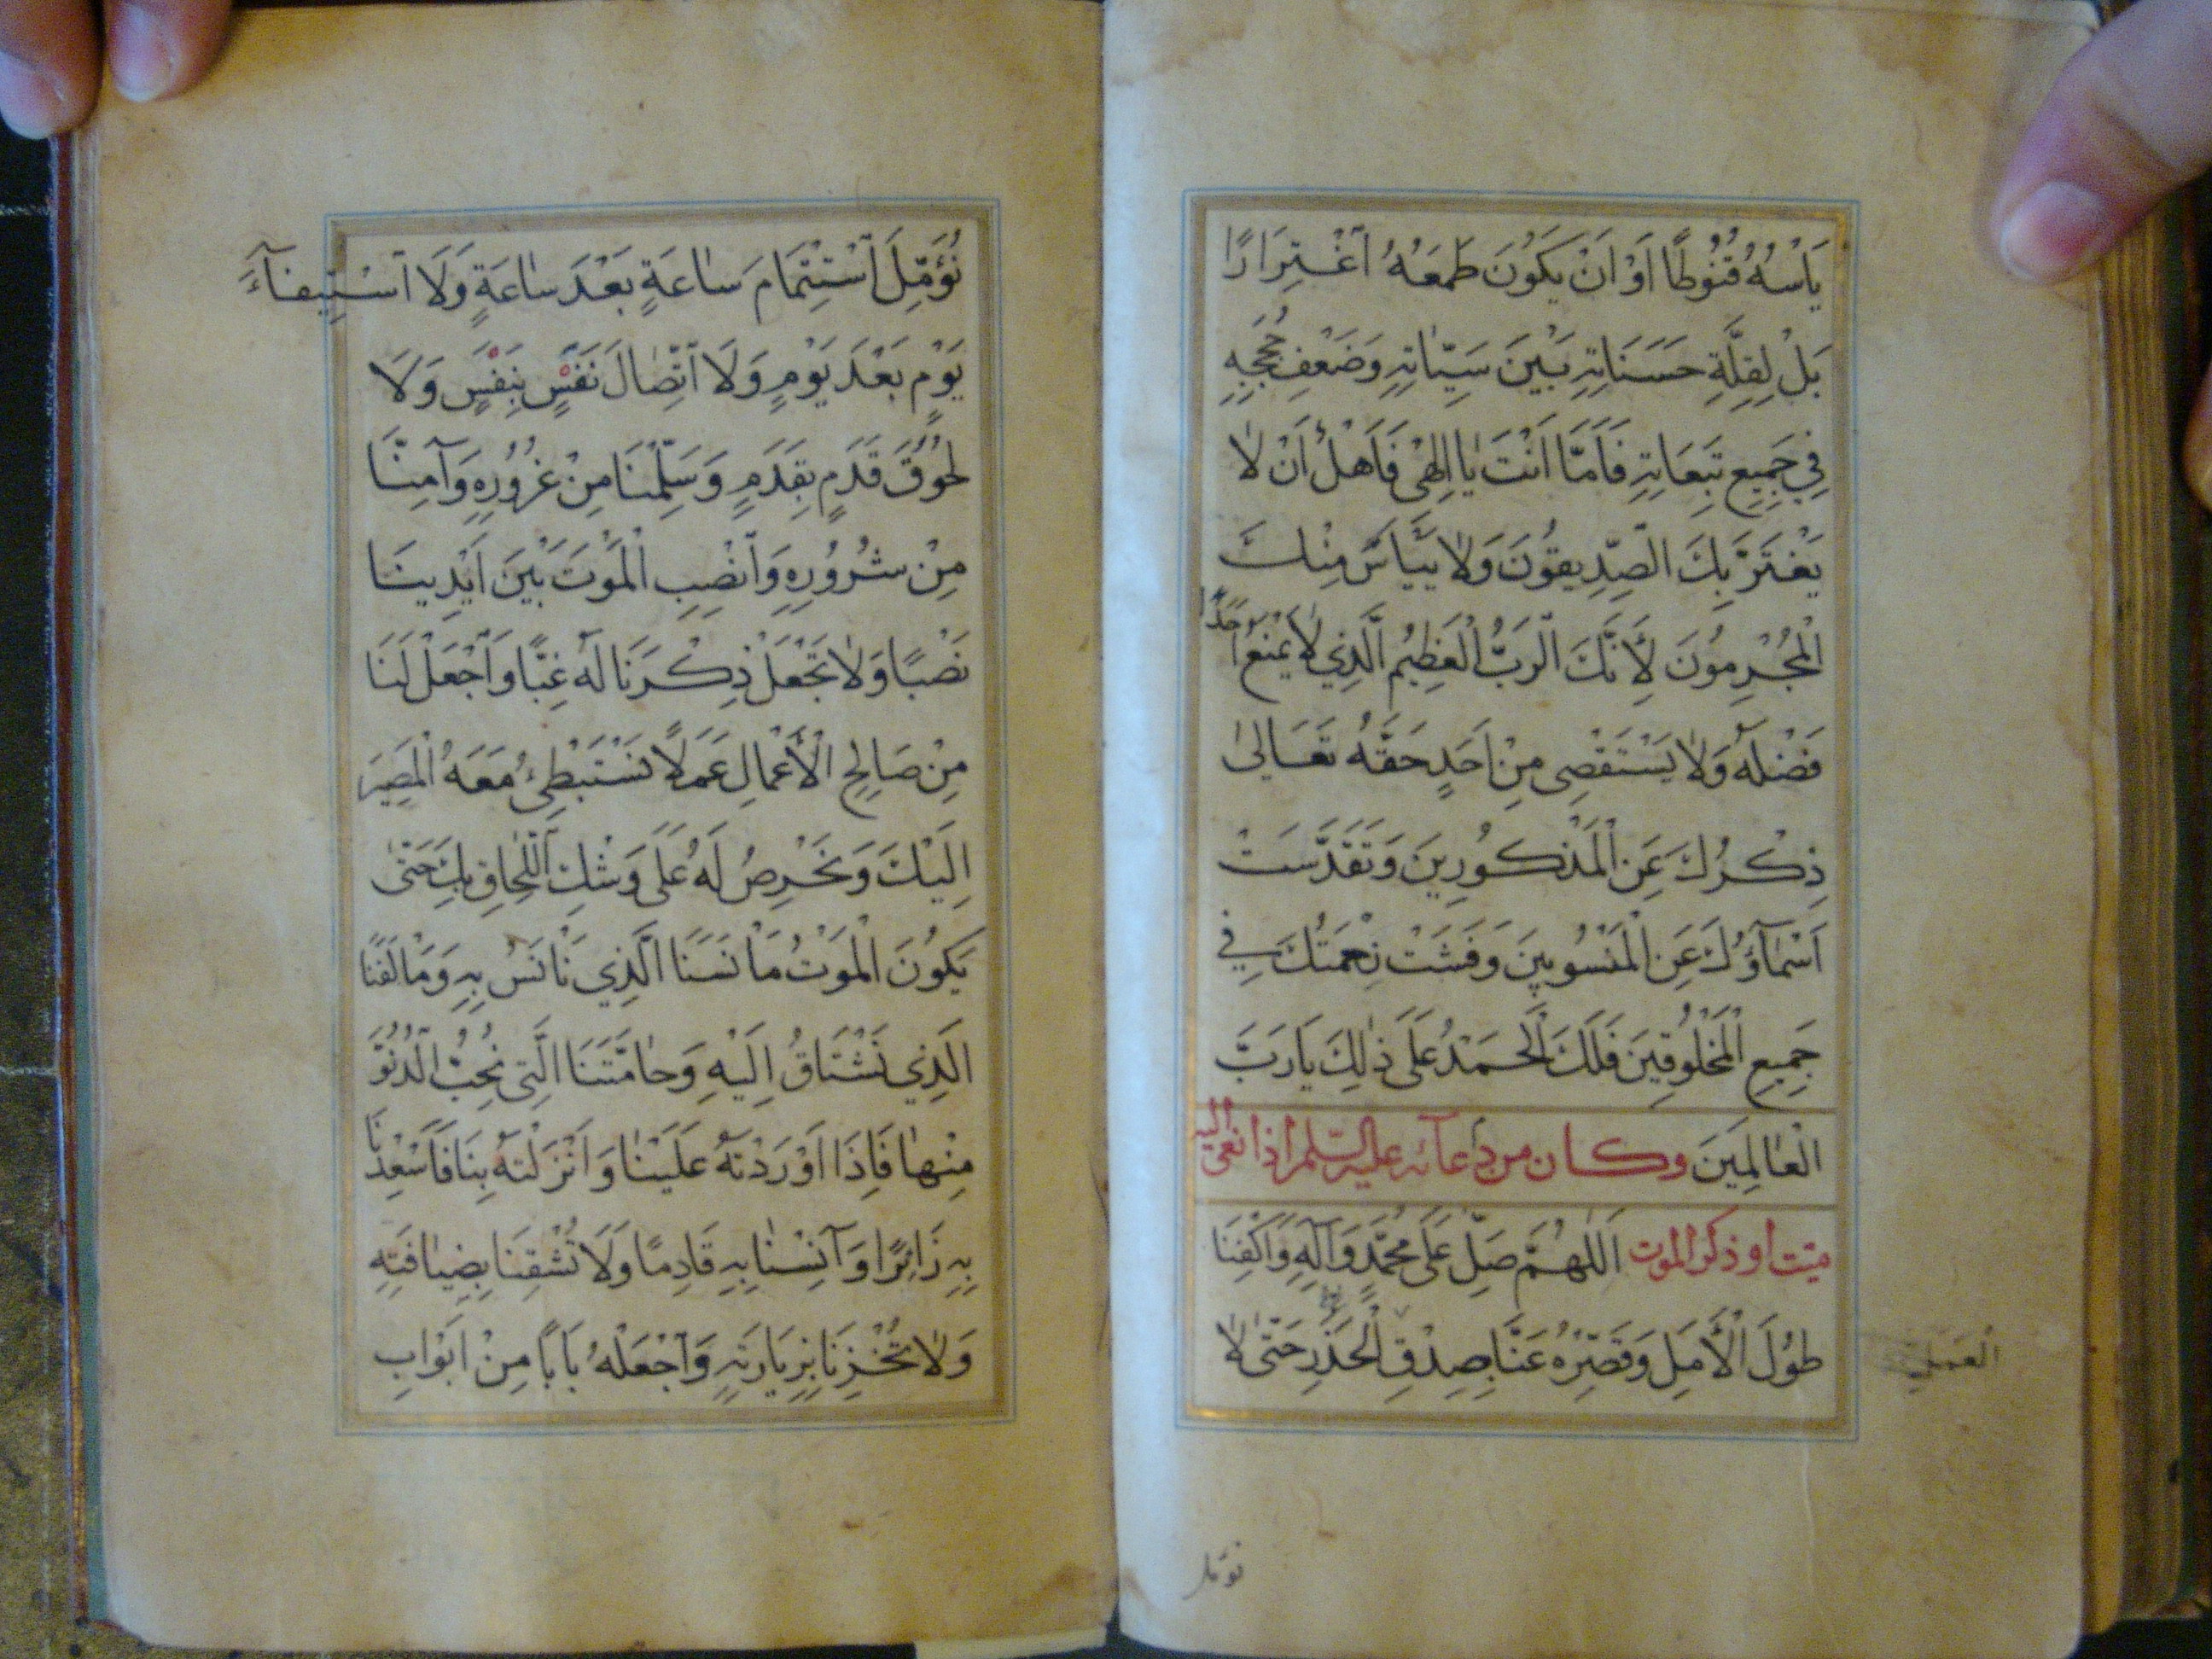 يَأْسُهُ قُنُوطًا اَوْ اَنْ يَكُونَ طَمَعُهُ اغْتِرَارًا
بَلْ لِقِلَّةِ حَسَنَاتِهِ بَيْنَ سَيِّئَاتِهِ وَضَعْفِ حُجَجِهِ
فِي جَمِيعِ تَبِعَاتِهِ فَاَمَّا اَنْتَ يَا اِلٰهِي فَاَهْلٌ اَنْ لَا
يَغْتَرَّ بِكَ الصِّدِّيقُونَ وَلَا يَيْاَسَ مِنْكَ
الْمُجْرِمُونَ لِأَنَّكَ الرَّبُّ الْعَظِيمُ الَّذِي لَا يَمْنَعُ اَحَدًا
فَضْلَهُ وَلَا يَسْتَقْصِي مِنْ اَحَدٍ حَقَّهُ تَعَالىٰ
ذِكْرُكَ عَنِ الْمَذْكُورِينَ وَتَقَدَّسَتْ
اَسْمَآؤُكَ عَنِ الْمَنْسُوبِينَ وَفَشَتْ نِعْمَتُكَ فِي
جَمِيعِ الْمَخْلُوقِينَ فَلَكَ الْحَمْدُ عَلَى ذٰلِكَ يَا رَبَّ
الْعَالَمِينَ وكان من دعآئه عليه السّلم اذا نعى اليه
ميّت او ذكر الموت اَللّٰهُمَّ صَلِّ عَلَى مُحَمَّدٍ وَآلِهِ وَاكْفِنَا
طُولَ الْأَمَلِ وَقَصِّرْهُ عَنَّا بِصِدْقِ الْحَذَرِ حَتّىٰ لَا
الْعَمَلِ
نؤمل
نُؤَمِّلَ اسْتِتْمَامَ سَاعَةٍ بَعْدَ سَاعَةٍ وَلَا اسْتِيفَآءَ
يَوْمٍ بَعْدَ يَوْمٍ وَلَا اتِّصَالَ نَفَسٍ بِنَفَسٍ وَلَا
لُحُوقَ قَدَمٍ بِقَدَمٍ وَسَلِّمْنَا مِنْ غُرُورِهِ وَآمِنَّا
مِنْ شُرُورِهِ وَانْصِبِ الْمَوْتَ بَيْنَ اَيْدِينَا
نَصْبًا وَلَا تَجْعَلْ ذِكْرَنَا لَهُ غِبًّا وَاجْعَلْ لَنَا
مِنْ صَالِحِ الْأَعْمَالِ عَمَلًا نَسْتَبْطِئُ مَعَهُ الْمَصِيرَ
اِلَيْكَ وَنَحْرِصُ لَهُ عَلَى وَشْكِ اللِّحَاقِ بِكَ حَتّىٰ
يَكُونَ الْمَوْتُ مَأْنَسَنَا الَّذِي نَأْنَسُ بِهِ وَمَأْلَفَنَا
الَّذِي نَشْتَاقُ اِلَيْهِ وَحَامَّتَنَا الَّتِي نُحِبُّ الدُّنُوَّ
مِنْهَا فَاِذَا اَوْرَدْتَهُ عَلَيْنَا وَاَنْزَلْتَهُ بِنَا فَاَسْعِدْنَا
بِهِ زَائِرًا وَآنِسْنَا بِهِ قَادِمًا وَلَا تُشْقِنَا بِضِيَافَتِهِ
وَلَا تُخْزِنَا بِزِيَارَتِهِ وَاجْعَلْهُ بَابًا مِنْ اَبْوَابِ